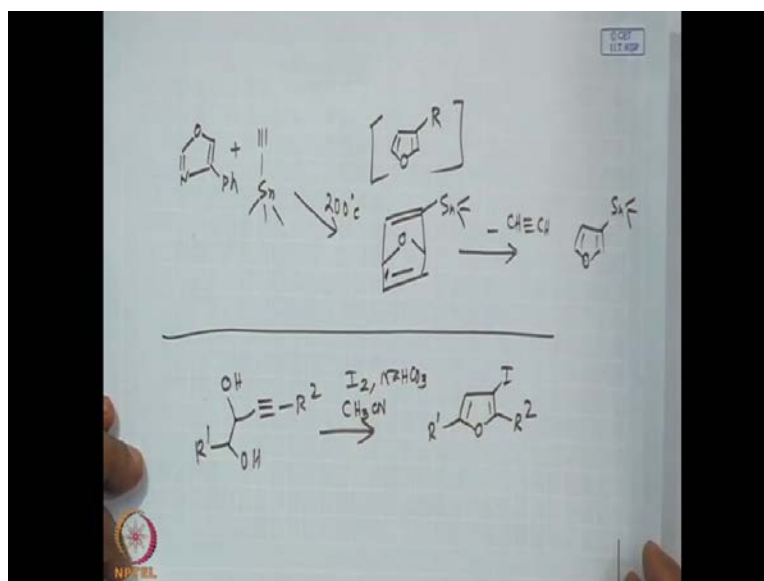 ©CET
I.I.T. KGP
O
N
+
Ph
Sn
200°C
R
O
Sn
O
- CH≡CH
Sn
O
OH
R'
OH
≡-R²
I₂, NaHCO₃
CH₃CN
I
R'
O
R²
NPTEL